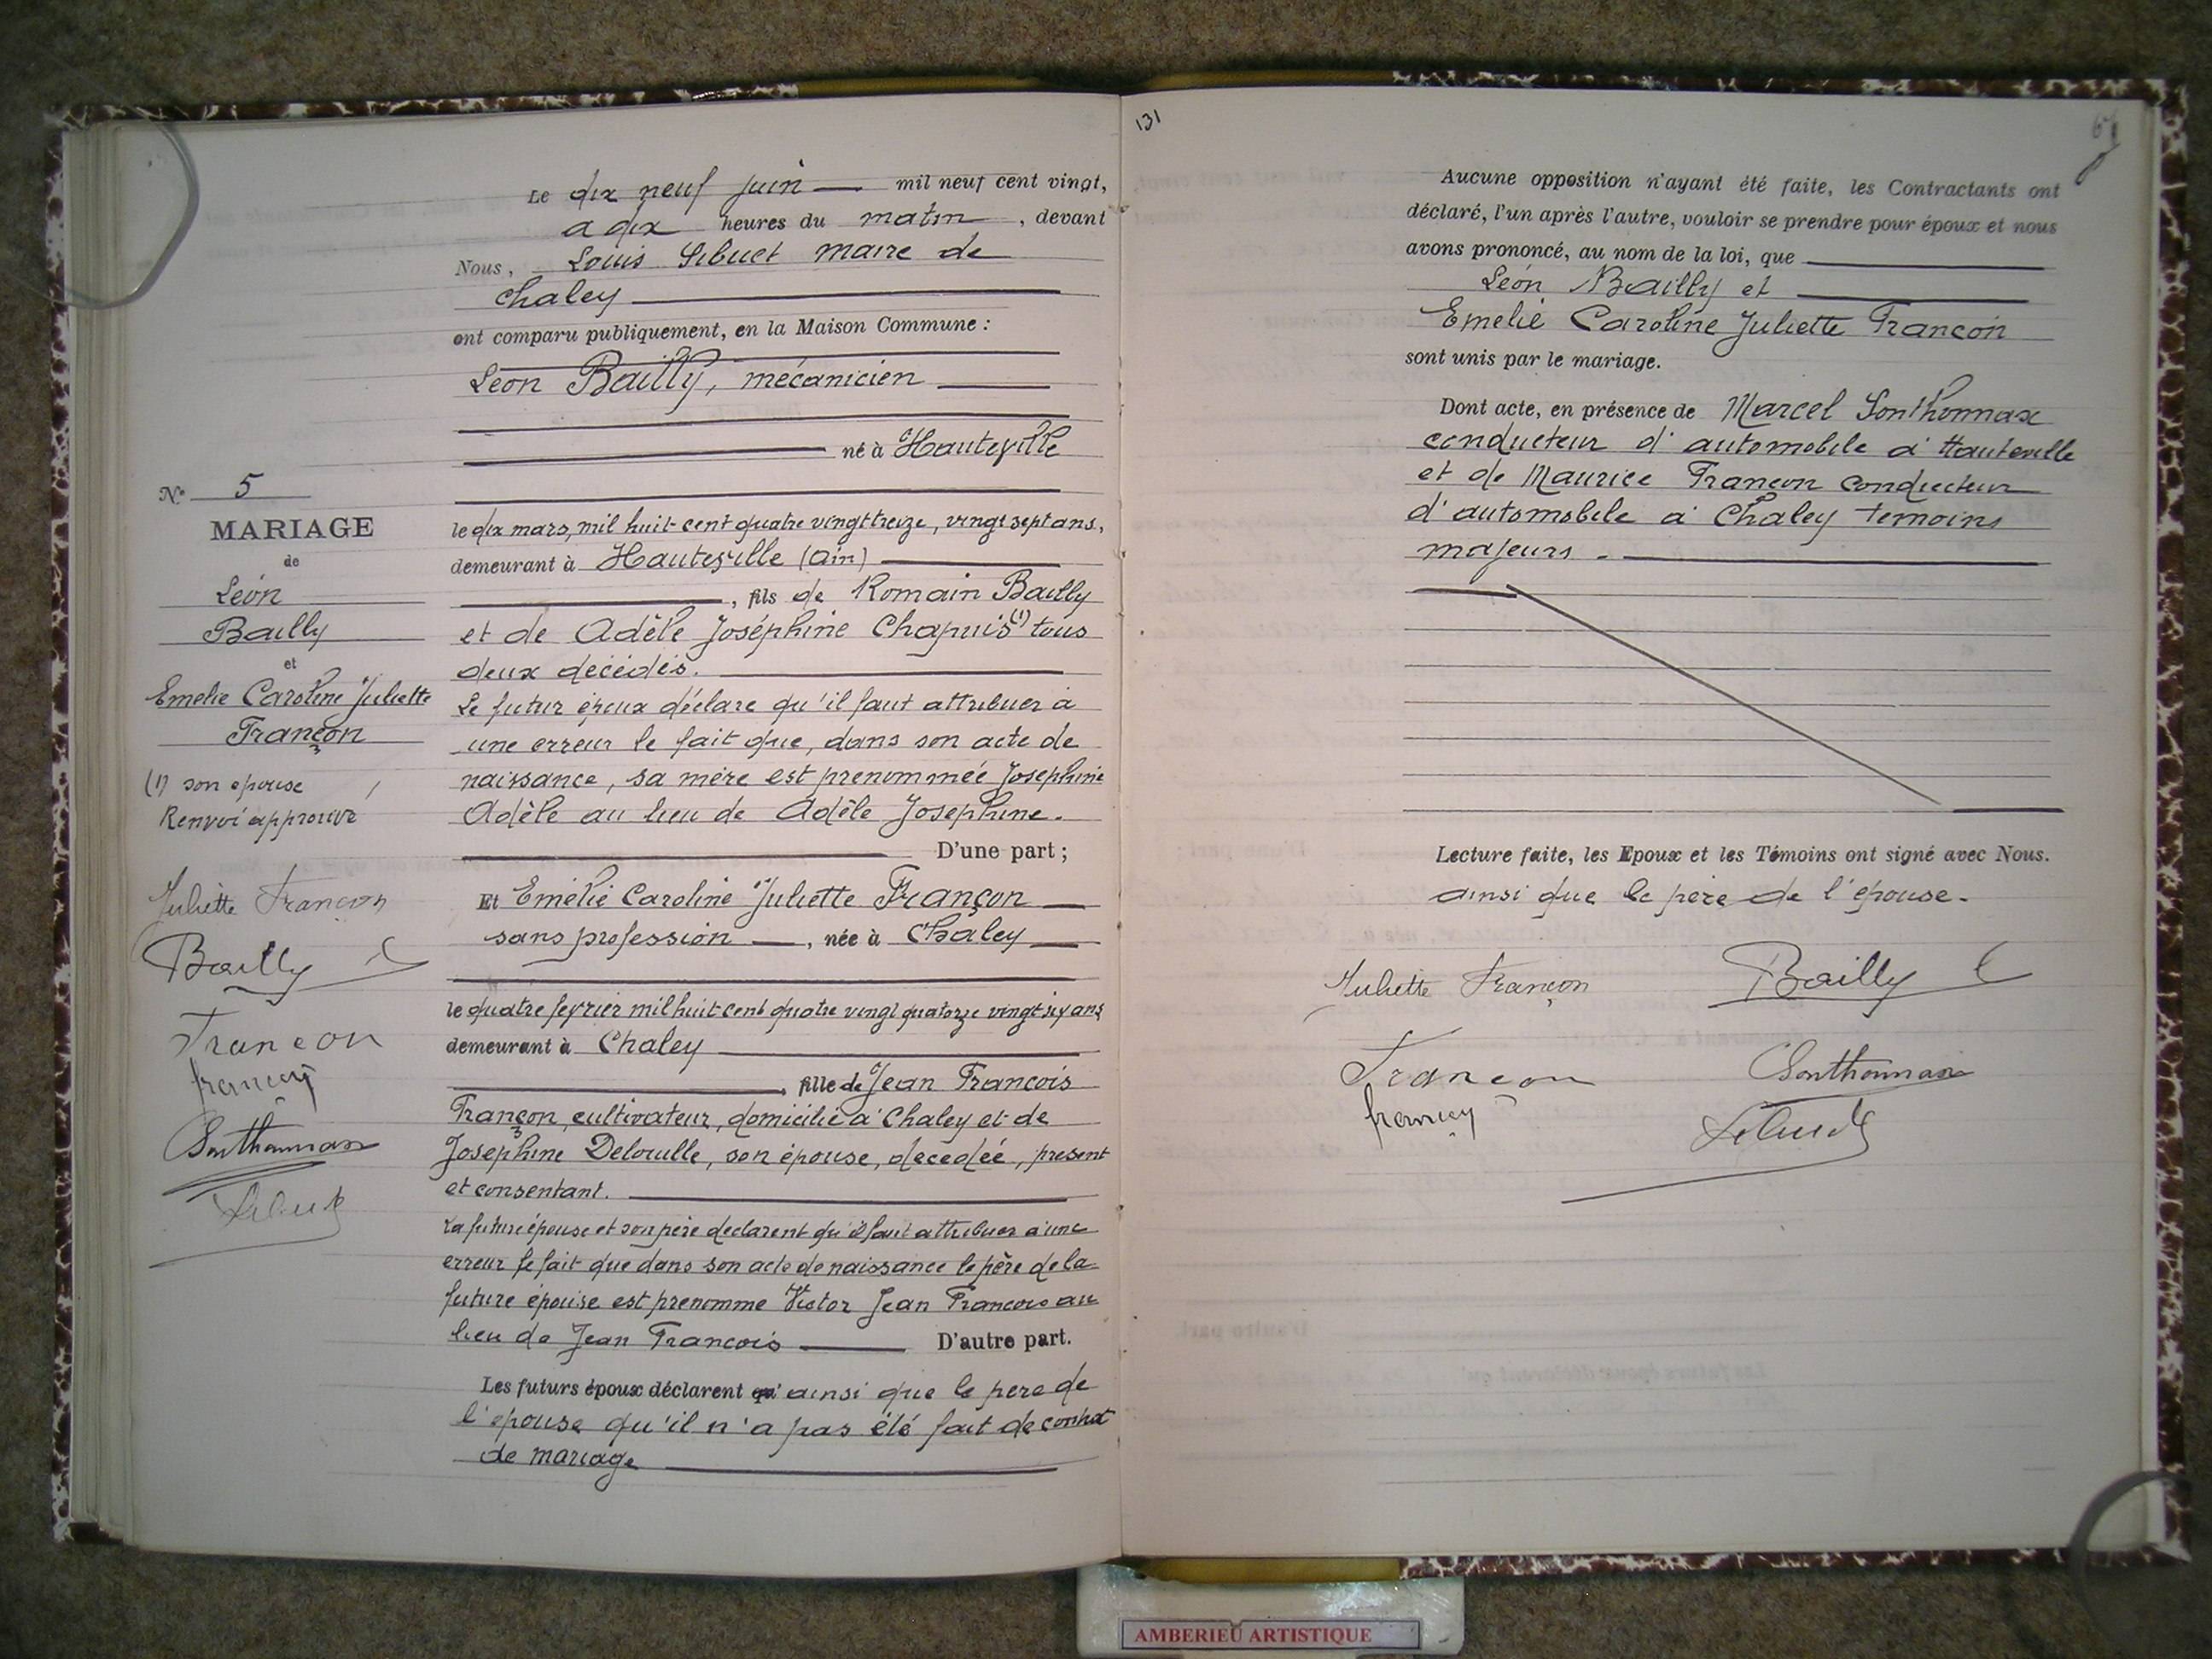 Le dix neuf juin mil neuf cent vingt,
a dix heures du matin, devant
Nous, Louis Sibuet maire de
Chaley
ont comparu publiquement, en la Maison Commune :
Léon Bailly, mécanicien
né à Hauteville
le dix mars, mil huit cent quatre vingt treize, vingt sept ans,
demeurant à Hauteville (Ain)
, fils de Romain Bailly
et de Adèle Joséphine Chapuis (1) tous
deux décédés.
Le futur époux déclare qu'il faut attribuer à
une erreur le fait que, dans son acte de
naissance, sa mère est prénommée Joséphine
Adèle au lieu de Adèle Joséphine.
D'une part ;
Et Emélie Caroline Juliette Françon
sans profession, née à Chaley
le quatre fevrier mil huit cent quatre vingt quatorze vingt six ans
demeurant à Chaley
, fille de Jean Francois
Françon, cultivateur, domicilié à Chaley et de
Joséphine Deloulle, son épouse, décédée, present
et consentant.
La future épouse et son père declarent qu'il faut attribuer à une
erreur le fait que dans son acte de naissance le père de la
future épouse est prenomme Victor Jean Francois au
lieu de Jean Francois D'autre part.
Les futurs époux déclarent qu' ainsi que le pere de
l'epouse qu'il n'a pas été fait de contrat
de mariage
N° 5
MARIAGE
de
Léon
Bailly
et
Emelie Caroline Juliette
Françon
(1) son epouse
Renvoi approuvé
Juliette Françon
Bailly L
Francon
françon
Sonthonnax
Sibuet
131
Aucune opposition n'ayant été faite, les Contractants ont
déclaré, l'un après l'autre, vouloir se prendre pour époux et nous
avons prononcé, au nom de la loi, que
Léon Bailly et
Emelie Caroline Juliette Francon
sont unis par le mariage.
Dont acte, en présence de Marcel Sonthonnax
conducteur d'automobile à Hauteville
et de Maurice Francon conducteur
d'automobile à Chaley temoins
majeurs.
Lecture faite, les Epoux et les Témoins ont signé avec Nous.
ainsi que le père de l'épouse.
Juliette Françon Bailly L
Francon Sonthonnax
françon Sibuet
AMBERIEU ARTISTIQUE